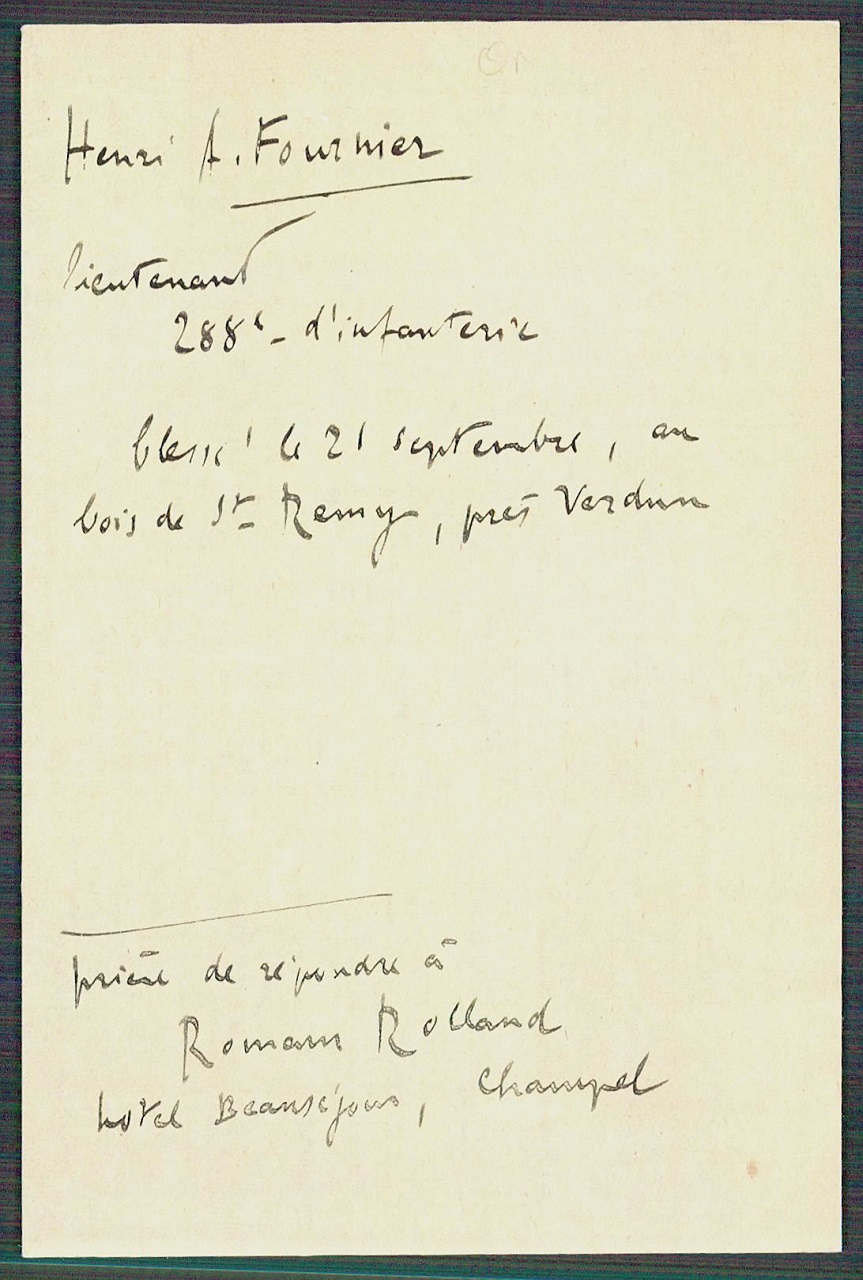 Henri A. Fournier
lieutenant
288e d'infanterie
blessé le 21 septembre, au
bois de St Remy, près Verdun
prière de répondre à
Romain Rolland
hotel Beauséjour, Champel